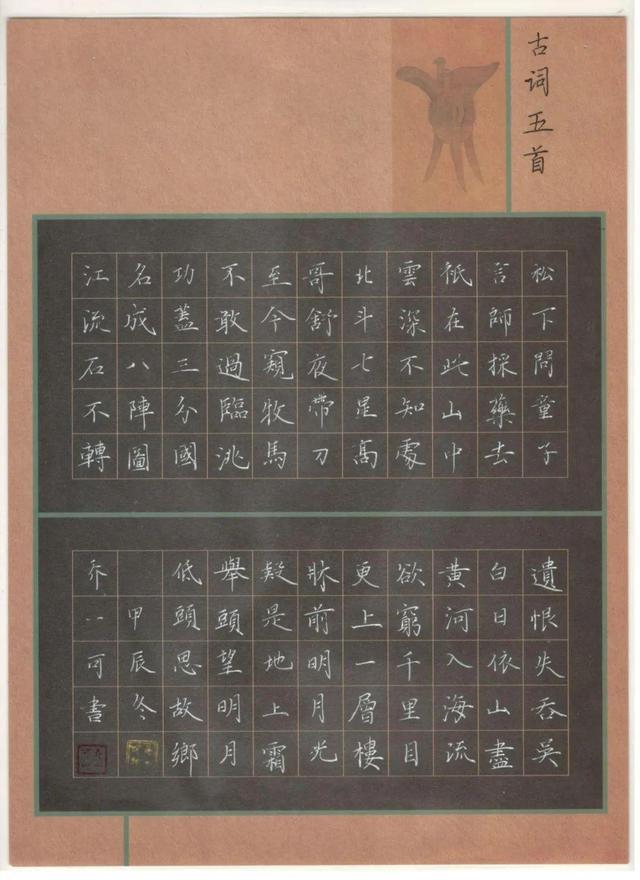 古词五首
松下問童子
言師採藥去
祇在此山中
雲深不知處
北斗七星高
哥舒夜帶刀
至今窺牧馬
不敢過臨洮
功蓋三分國
名成八陣圖
江流石不轉
遺恨失吞吳
白日依山盡
黃河入海流
欲窮千里目
更上一層樓
牀前明月光
疑是地上霜
舉頭望明月
低頭思故鄉
甲辰冬
乔一可書